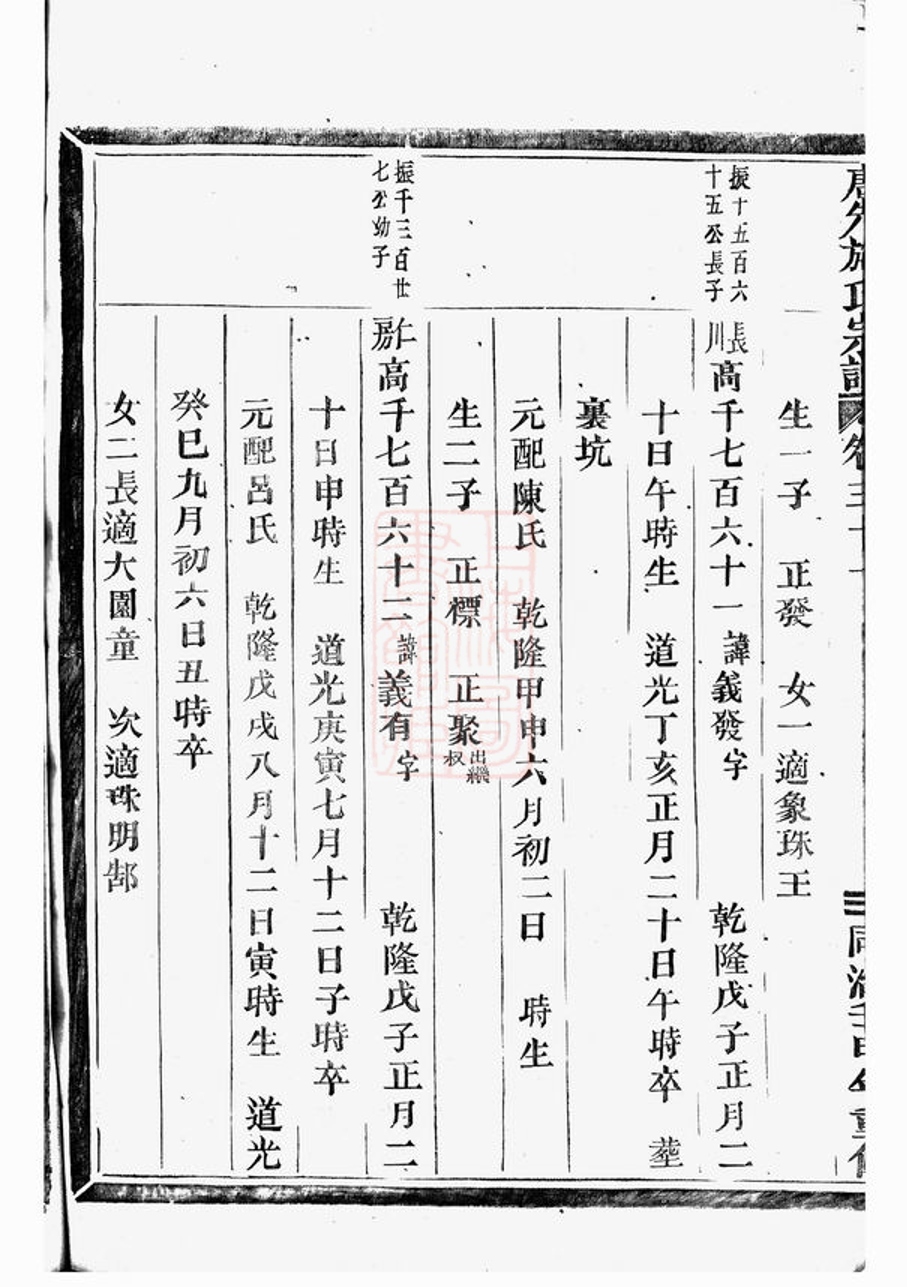 施氏宗譜
生一子　正發　女一適象珠王
振十五百六
十五公長子
長
川
高千七百六十一諱義發字　乾隆戊子正月二
十日午時生　道光丁亥正月二十日午時卒　塟
裏坑
元配陳氏　乾隆甲申六月初二日　時生
生二子　正標　正聚出繼
叔
振千三百廿
七公幼子
仁
高千七百六十二諱義有字　乾隆戊子正月二
十日申時生　道光庚寅七月十二日子時卒
元配呂氏　乾隆戊戌八月十二日寅時生　道光
癸巳九月初六日丑時卒
女二長適大園童　次適珠明郜